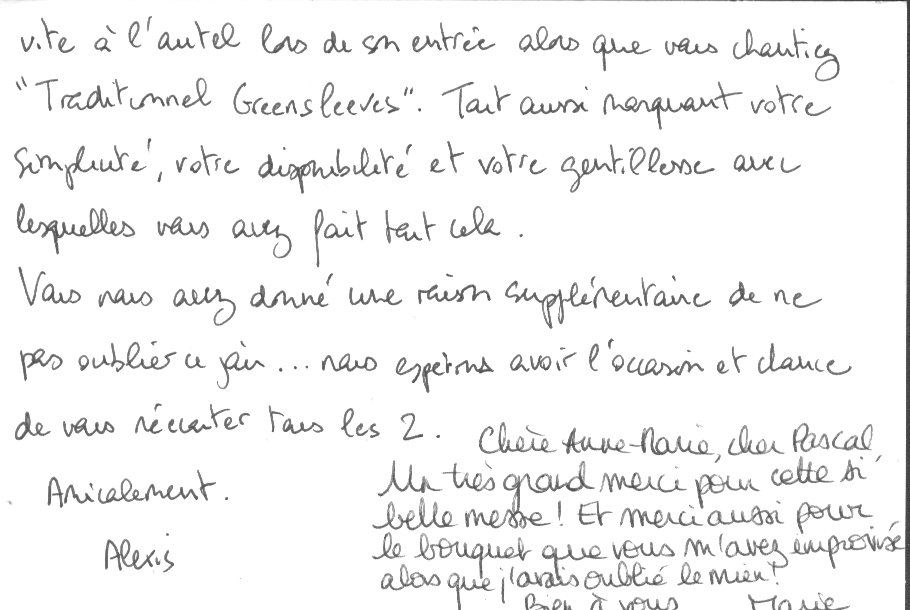 vite à l'autel lors de son entrée alors que vous chantiez
"Traditionnel Greensleeves". Tout aussi marquant votre
simplicité, votre disponibilité et votre gentillesse avec
lesquelles vous avez fait tout cela.
Vous nous avez donné une raison supplémentaire de ne
pas oublier ce jour... nous espérons avoir l'occasion et chance
de vous réécouter tous les 2.
Amicalement.
Alexis
Chère Anne-Marie, cher Pascal,
Un très grand merci pour cette si
belle messe! Et merci aussi pour
le bouquet que vous m'avez improvisé
alors que j'avais oublié le mien!
Bien à vous Marie